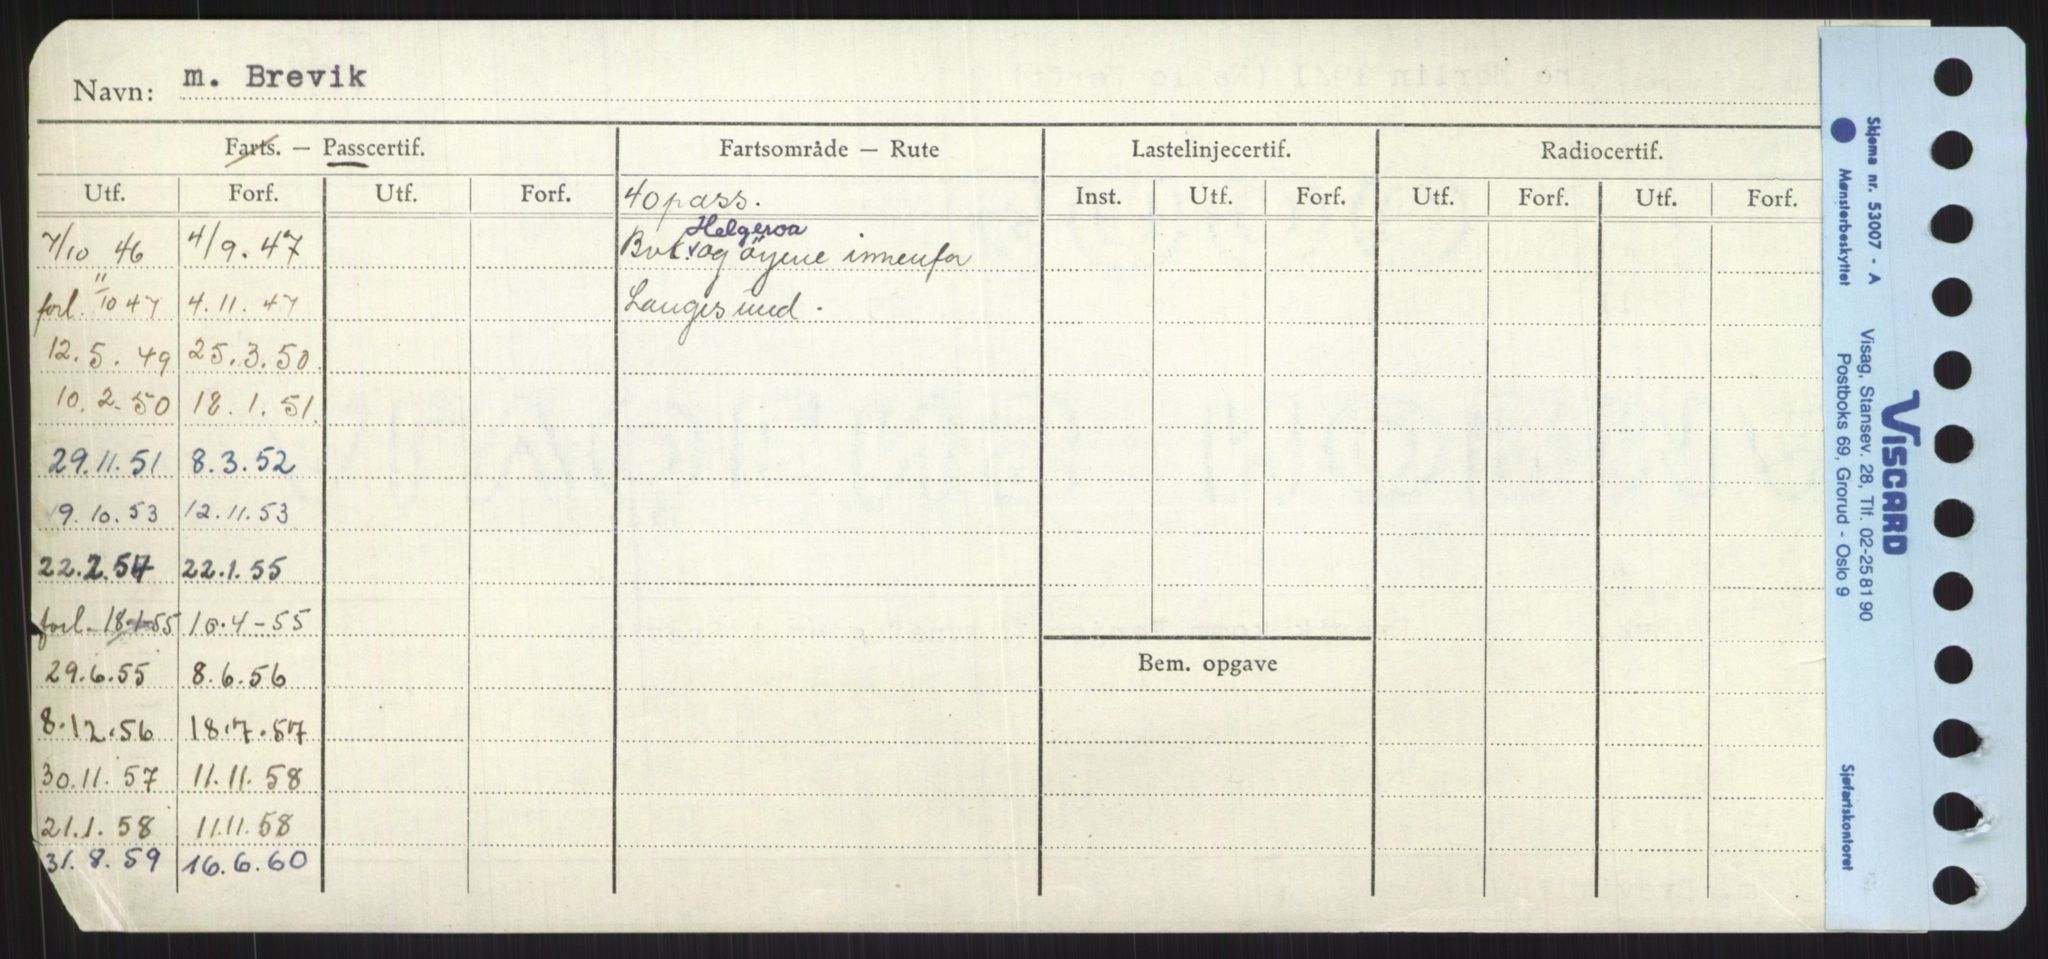 Navn: m. Brevik
Farts. — Passcertif. Fartsområde — Rute Lastelinjecertif. Radiocertif.
Utf. Forf. Utf. Forf. 40 pass. Inst. Utf. Forf. Utf. Forf. Utf. Forf.
Helgeroa
7/10 46 4/9.47 Bvk. og öyene innenfor
forl. 11/10 47 4.11.47 Langesund.
12.5.49 25.3.50.
10.2.50 18.1.51
29.11.51 8.3.52
9.10.53 12.11.53
22.2.54 22.1.55
forl. 18-1-55 16.4-55
29.6.55 8.6.56
Bem. opgave
8.12.56 18.7.57
30.11.57 11.11.58
21.1.58 11.11.58
31.8.59 16.6.60
Skjema nr. 53007 - A
Mønsterbeskyttet
Sjøfartskontoret
VISCARD
Visag, Stansev. 28, Tlf. 02-25 81 90
Postboks 69, Grorud - Oslo 9